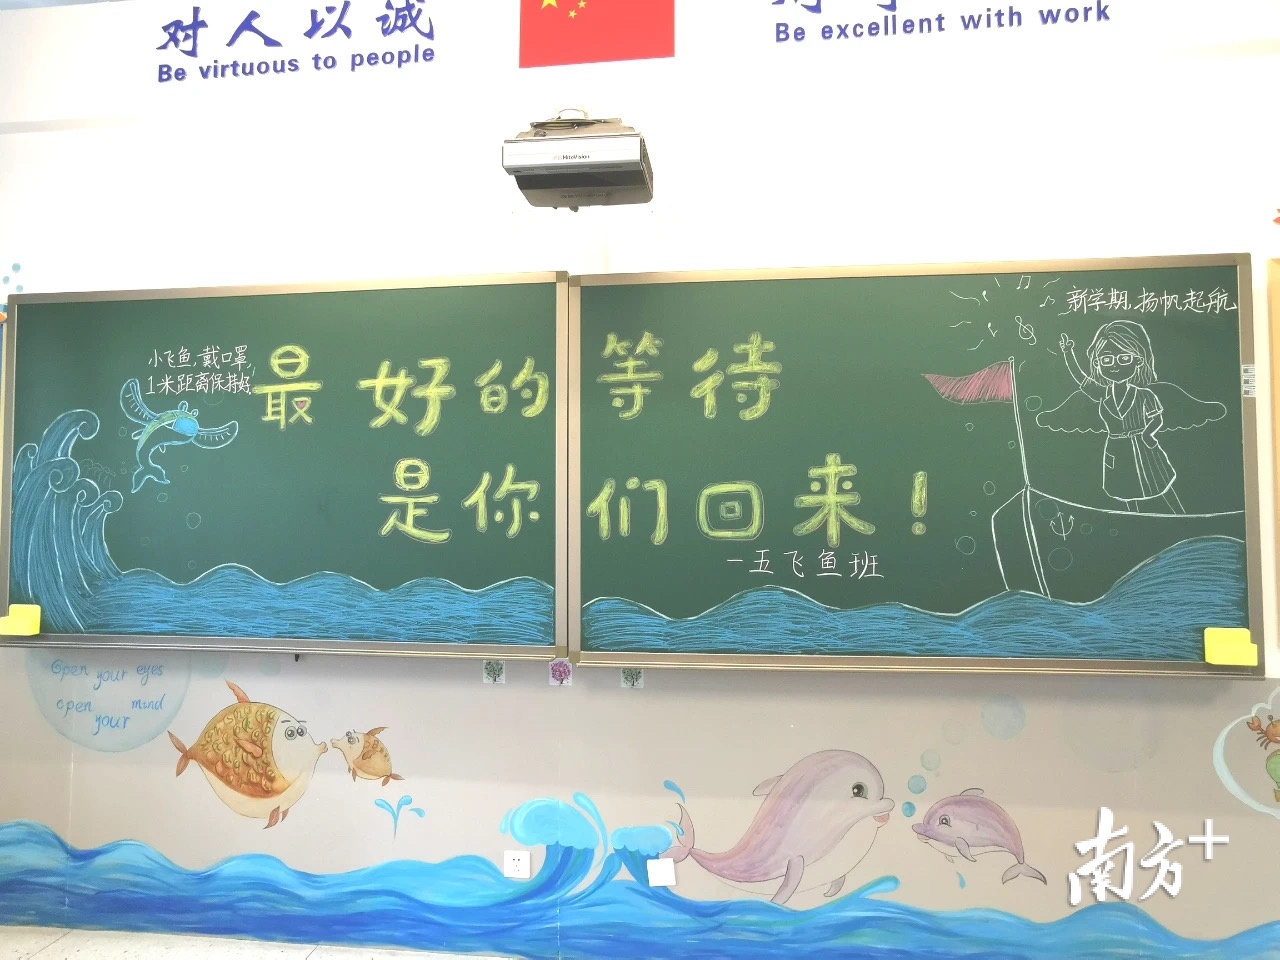 对人以诚
Be virtuous to people
Be excellent with work
HiteVision
新学期,扬帆起航
小飞鱼,戴口罩,
1米距离保持好!
最好的等待
是你们回来!
一五飞鱼班
Open your eyes
open your mind
南方+